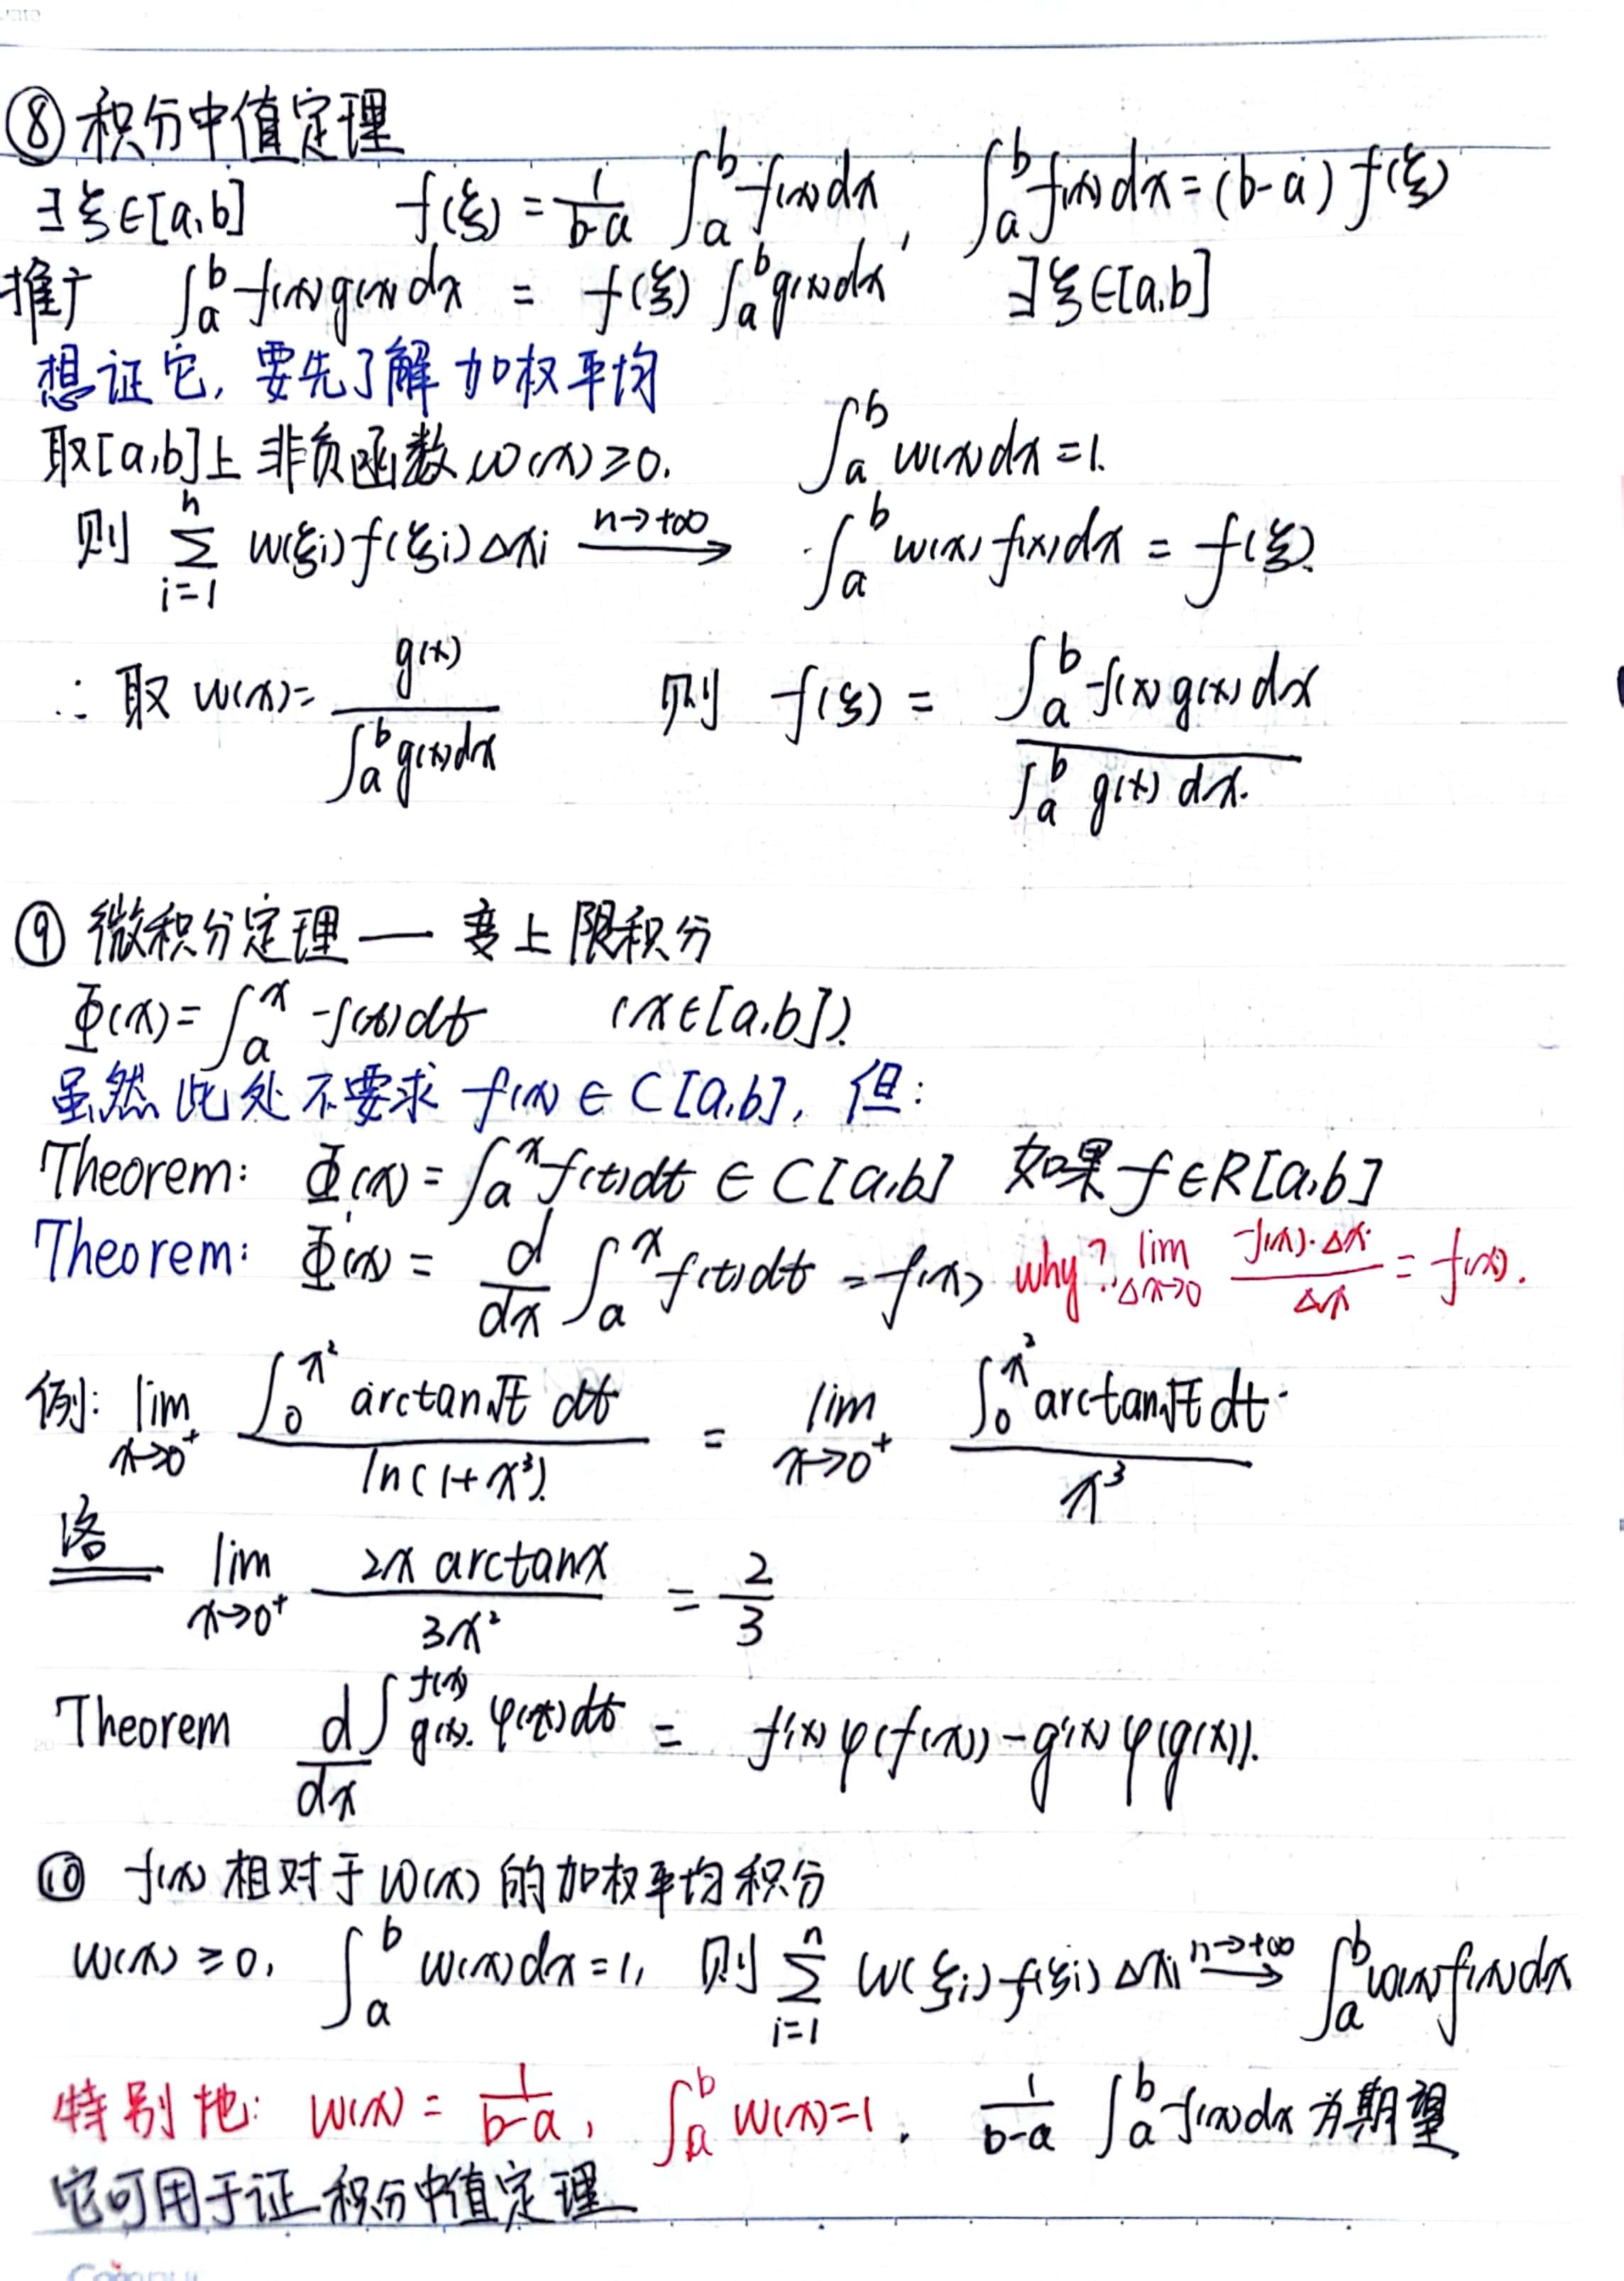 ⑧ 积分中值定理
∃ξ∈[a,b] f(ξ) = \frac{1}{b-a} ∫_a^b f(x)dx, ∫_a^b f(x)dx = (b-a) f(ξ)
推广 ∫_a^b f(x)g(x)dx = f(ξ) ∫_a^b g(x)dx ∃ξ∈[a,b]
想证它, 要先了解加权平均
取[a,b]上非负函数 w(x)≥0. ∫_a^b w(x)dx = 1.
则 \sum_{i=1}^n w(ξi) f(ξi) Δxi \xrightarrow{n→+∞} ∫_a^b w(x) f(x)dx = f(ξ).
∴ 取 w(x) = \frac{g(x)}{∫_a^b g(x)dx} 则 f(ξ) = \frac{∫_a^b f(x) g(x) dx}{∫_a^b g(x) dx.}
⑨ 微积分定理 — 变上限积分
Φ(x) = ∫_a^x f(t)dt (x∈[a,b]).
虽然此处不要求 f(x) ∈ C[a,b], 但:
Theorem: Φ(x) = ∫_a^x f(t)dt ∈ C[a,b] 如果 f∈R[a,b]
Theorem: Φ'(x) = \frac{d}{dx} ∫_a^x f(t)dt = f(x) why? \lim_{Δx→0} \frac{f(x)·Δx}{Δx} = f(x).
例: \lim_{x→0^+} \frac{∫_0^{x^2} arctan√t dt}{ln(1+x^3).} = \lim_{x→0^+} \frac{∫_0^{x^2} arctan√t dt}{x^3}
洛 \lim_{x→0^+} \frac{2x arctanx}{3x^2} = \frac{2}{3}
Theorem \frac{d}{dx} ∫_{g(x)}^{f(x)} φ(t)dt = f'(x) φ(f(x)) - g'(x) φ(g(x)).
⑩ f(x) 相对于 w(x) 的加权平均积分
w(x) ≥ 0, ∫_a^b w(x)dx = 1, 则 \sum_{i=1}^n w(ξi) f(ξi) Δxi \xrightarrow{n→+∞} ∫_a^b w(x)f(x)dx
特别地: w(x) = \frac{1}{b-a}, ∫_a^b w(x) = 1. \frac{1}{b-a} ∫_a^b f(x)dx 为期望
它可用于证 积分中值定理